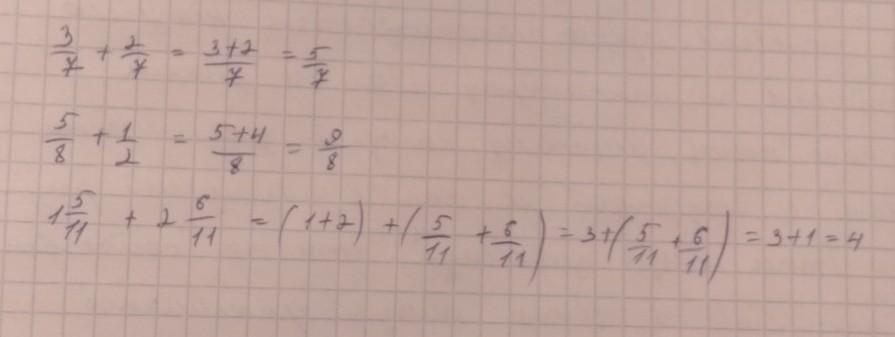 3/7 + 2/7 = 3+2/7 = 5/7
5/8 + 1/2 = 5+4/8 = 9/8
1 5/11 + 2 6/11 = (1+2) + (5/11 + 6/11) = 3+(5/11 + 6/11) = 3+1 = 4